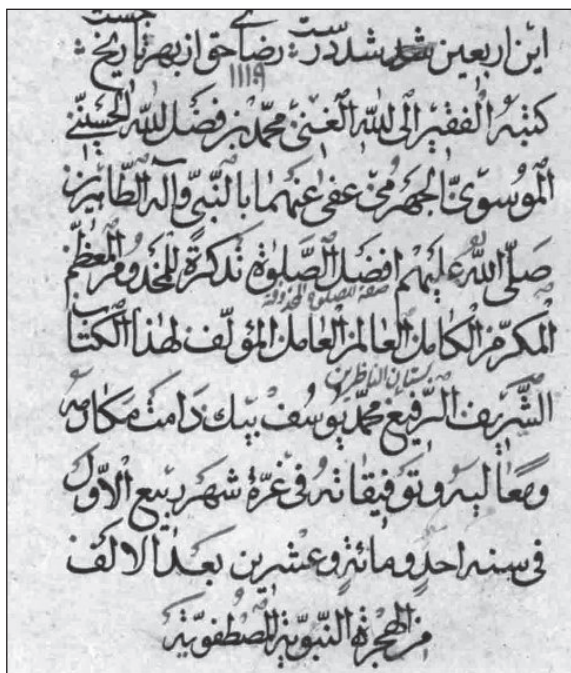 جست
این اربعین شد درست رضای حق از بهر تاریخ
۱۱۱۹
کتبه الفقیر الی الله الغنی محمد بن فضل الله الحسینی
الموسوی الجهرمی عفی عنهما بالنبی وآله الطاهرین
صلی الله علیهم افضل الصلوة تذکرة للمخدوم المعظم
صفة للصلوة المحذوفة
المکرم الکامل العالم العامل المؤلف لهذا الکتاب
بستان الناظرین
الشریف الرفیع محمد یوسف بیک دامت مکارمه
ومعالیه وتوفیقاته فی غرة شهر ربیع الاول
فی سنه احد ومائة وعشرین بعد الالف
من الهجرة النبویة المصطفویة